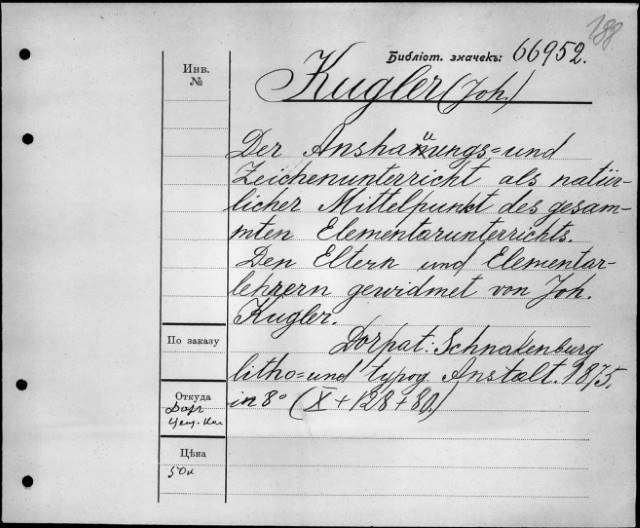 188.
Библіот. значекъ: 66952.
Инв.
№
Kugler (Joh.)
Der Anshaüungs= und
Zeichenunterricht als natür-
licher Mittelpunkt des gesam-
mten Elementarunterrichts.
Den Eltern und Elementar-
lehrern gewidmet von Joh.
Kugler.
По заказу
Dorpat: Schnakenburg
litho= und typog Anstalt. 1875.
in 8° (X + 128 + 80.)
Откуда
Цѣна
50к